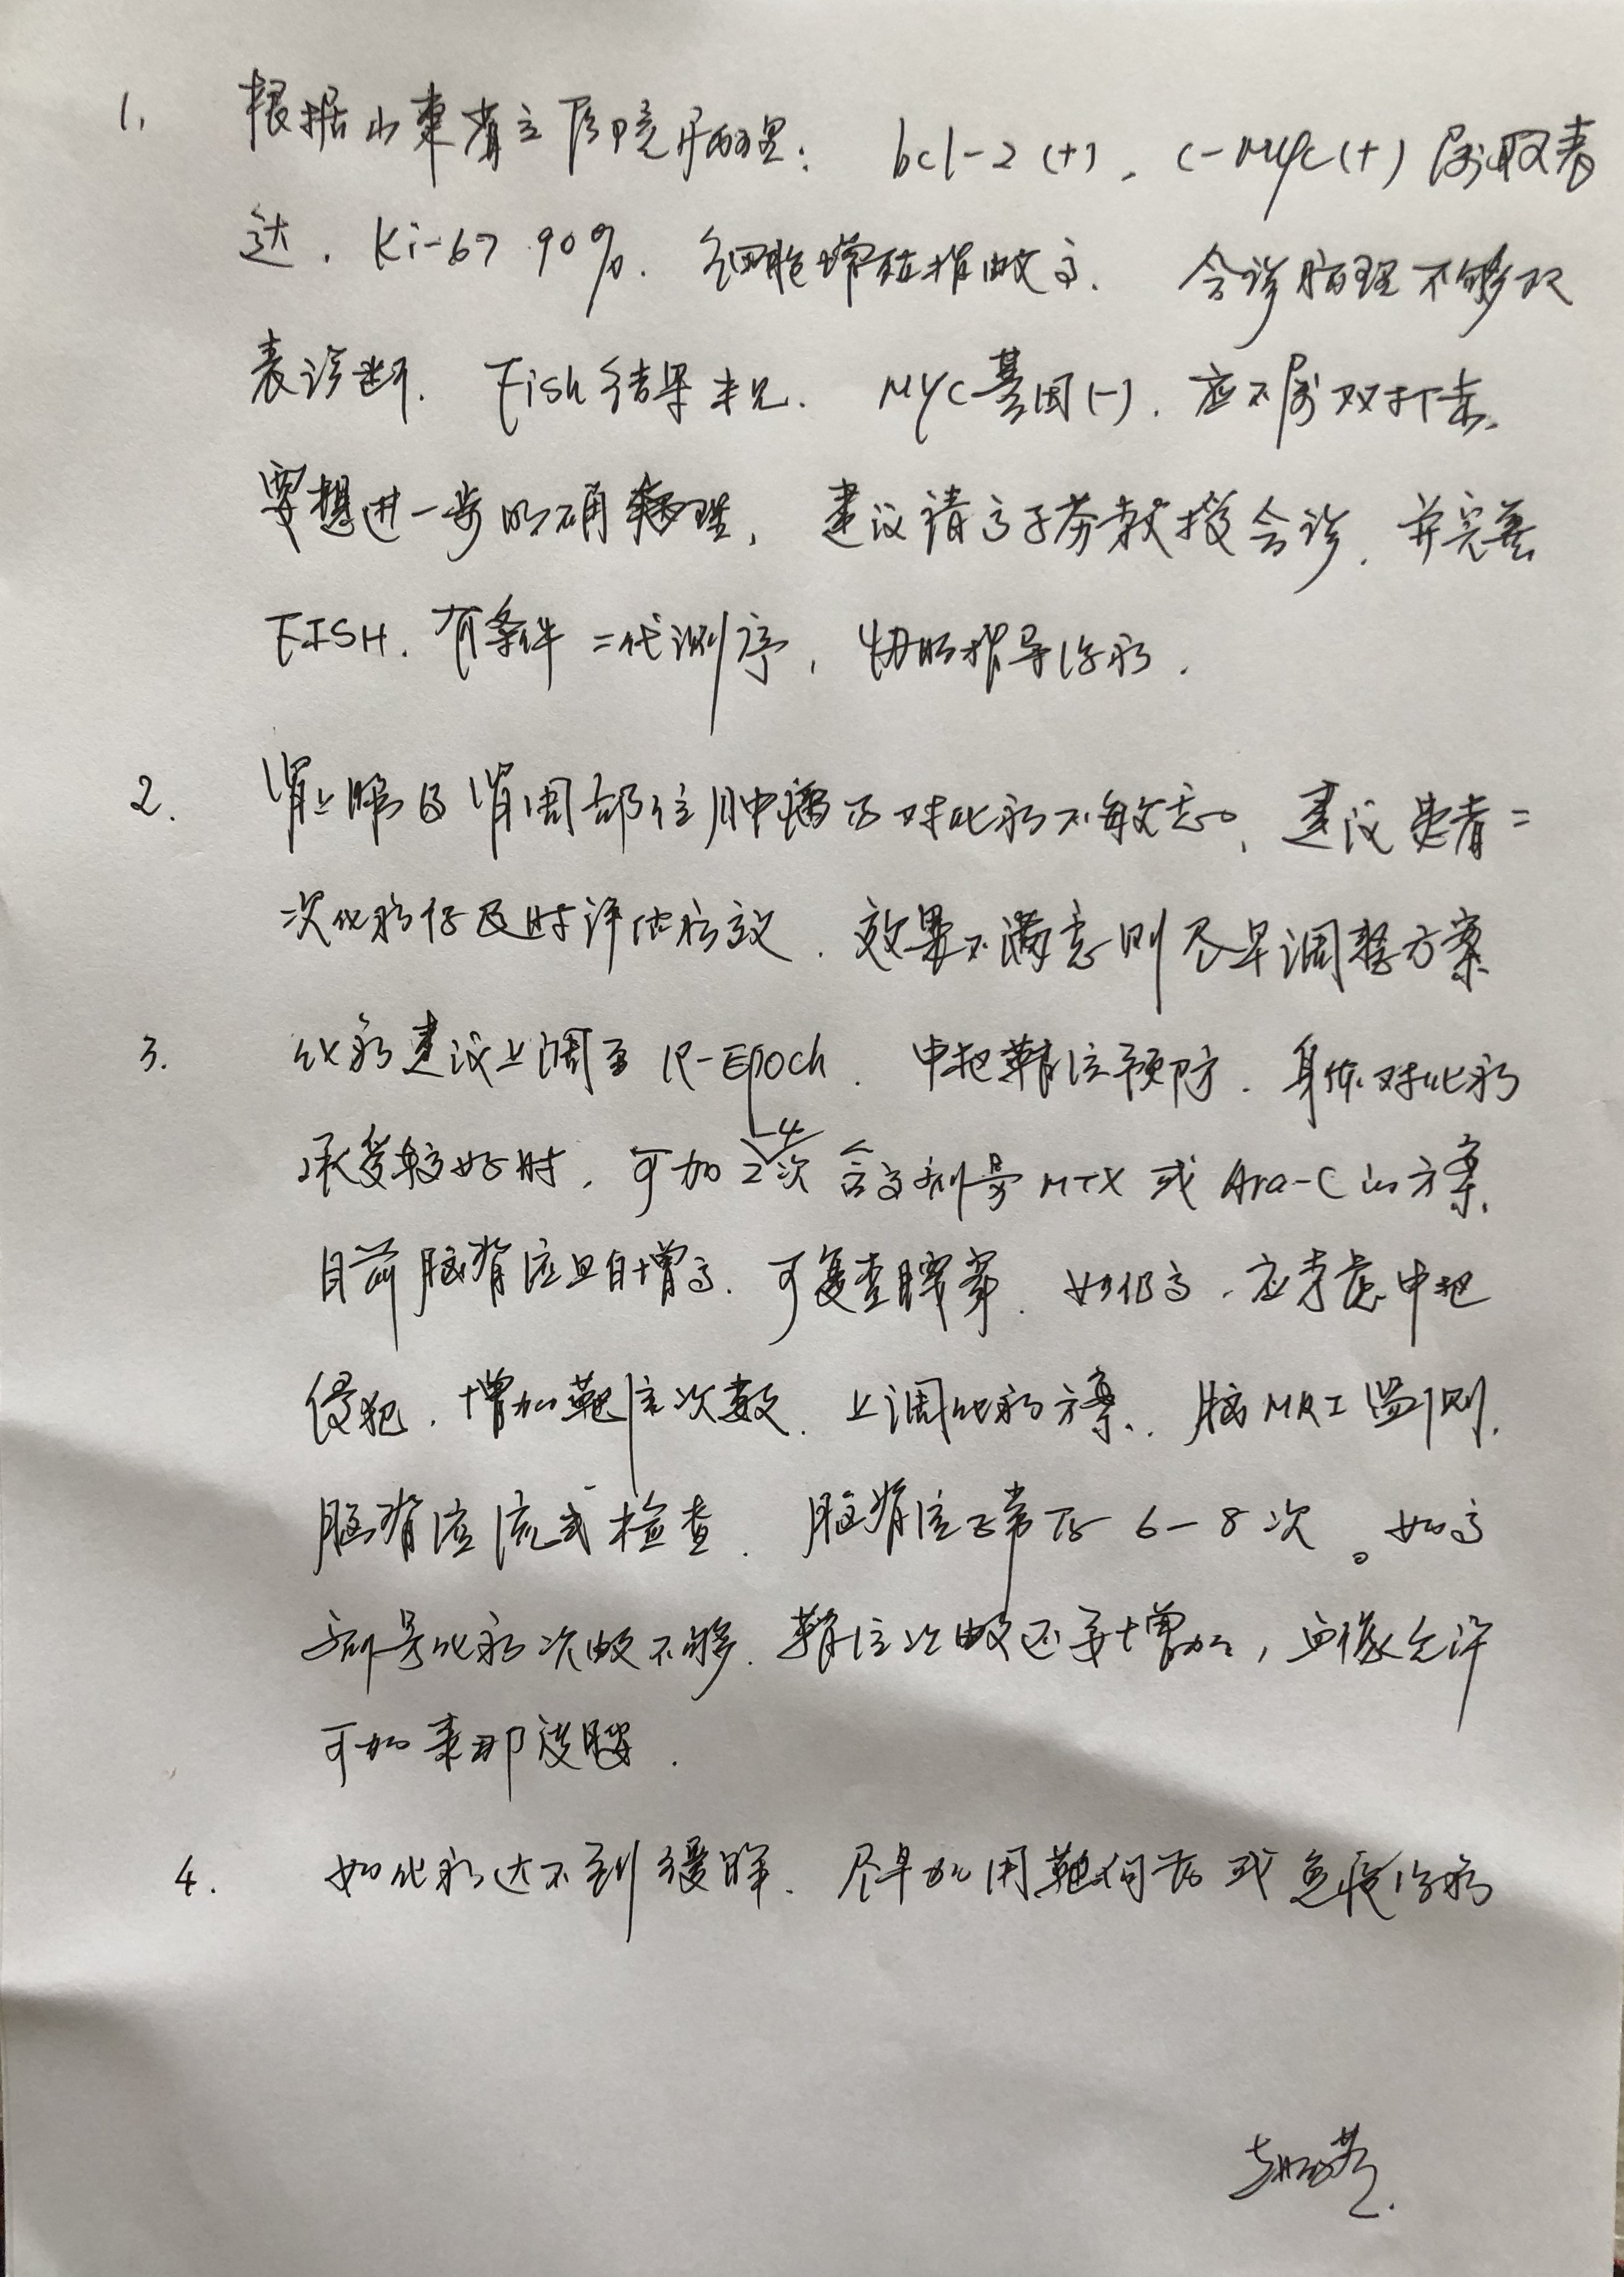 1. 根据山东省立医院病理: bcl-2 (+), c-MYC(+) 属双表
达, Ki-67 90%. 细胞增殖指数高. 会诊病理不够双
表诊断. Fish结果未见. MYC基因(-), 应不属双打击.
要想进一步明确病理, 建议请高子芬教授会诊, 并完善
FISH. 有条件二代测序, 协助指导治疗.
2. 肾上腺及肾周部位肿瘤 对化疗不敏感, 建议患者二
次化疗后及时评估疗效. 效果不满意则尽早调整方案
3. 化疗建议上调至 R-Epoch. 中枢鞘注预防. 身体对化疗
承受较好时, 可加2-4次含高剂量MTX 或 Ara-C的方案.
目前脑脊液蛋白增高. 可复查腰穿. 如仍高, 应考虑中枢
侵犯, 增加鞘注次数. 上调化疗方案. 脑MRI监测.
脑脊液流式检查. 脑脊液正常后 6-8次。如高
剂量化疗次数不够. 鞘注次数还要增加, 血象允许
可加来那度胺.
4. 如化疗达不到缓解. 尽早加用靶向药或免疫治疗